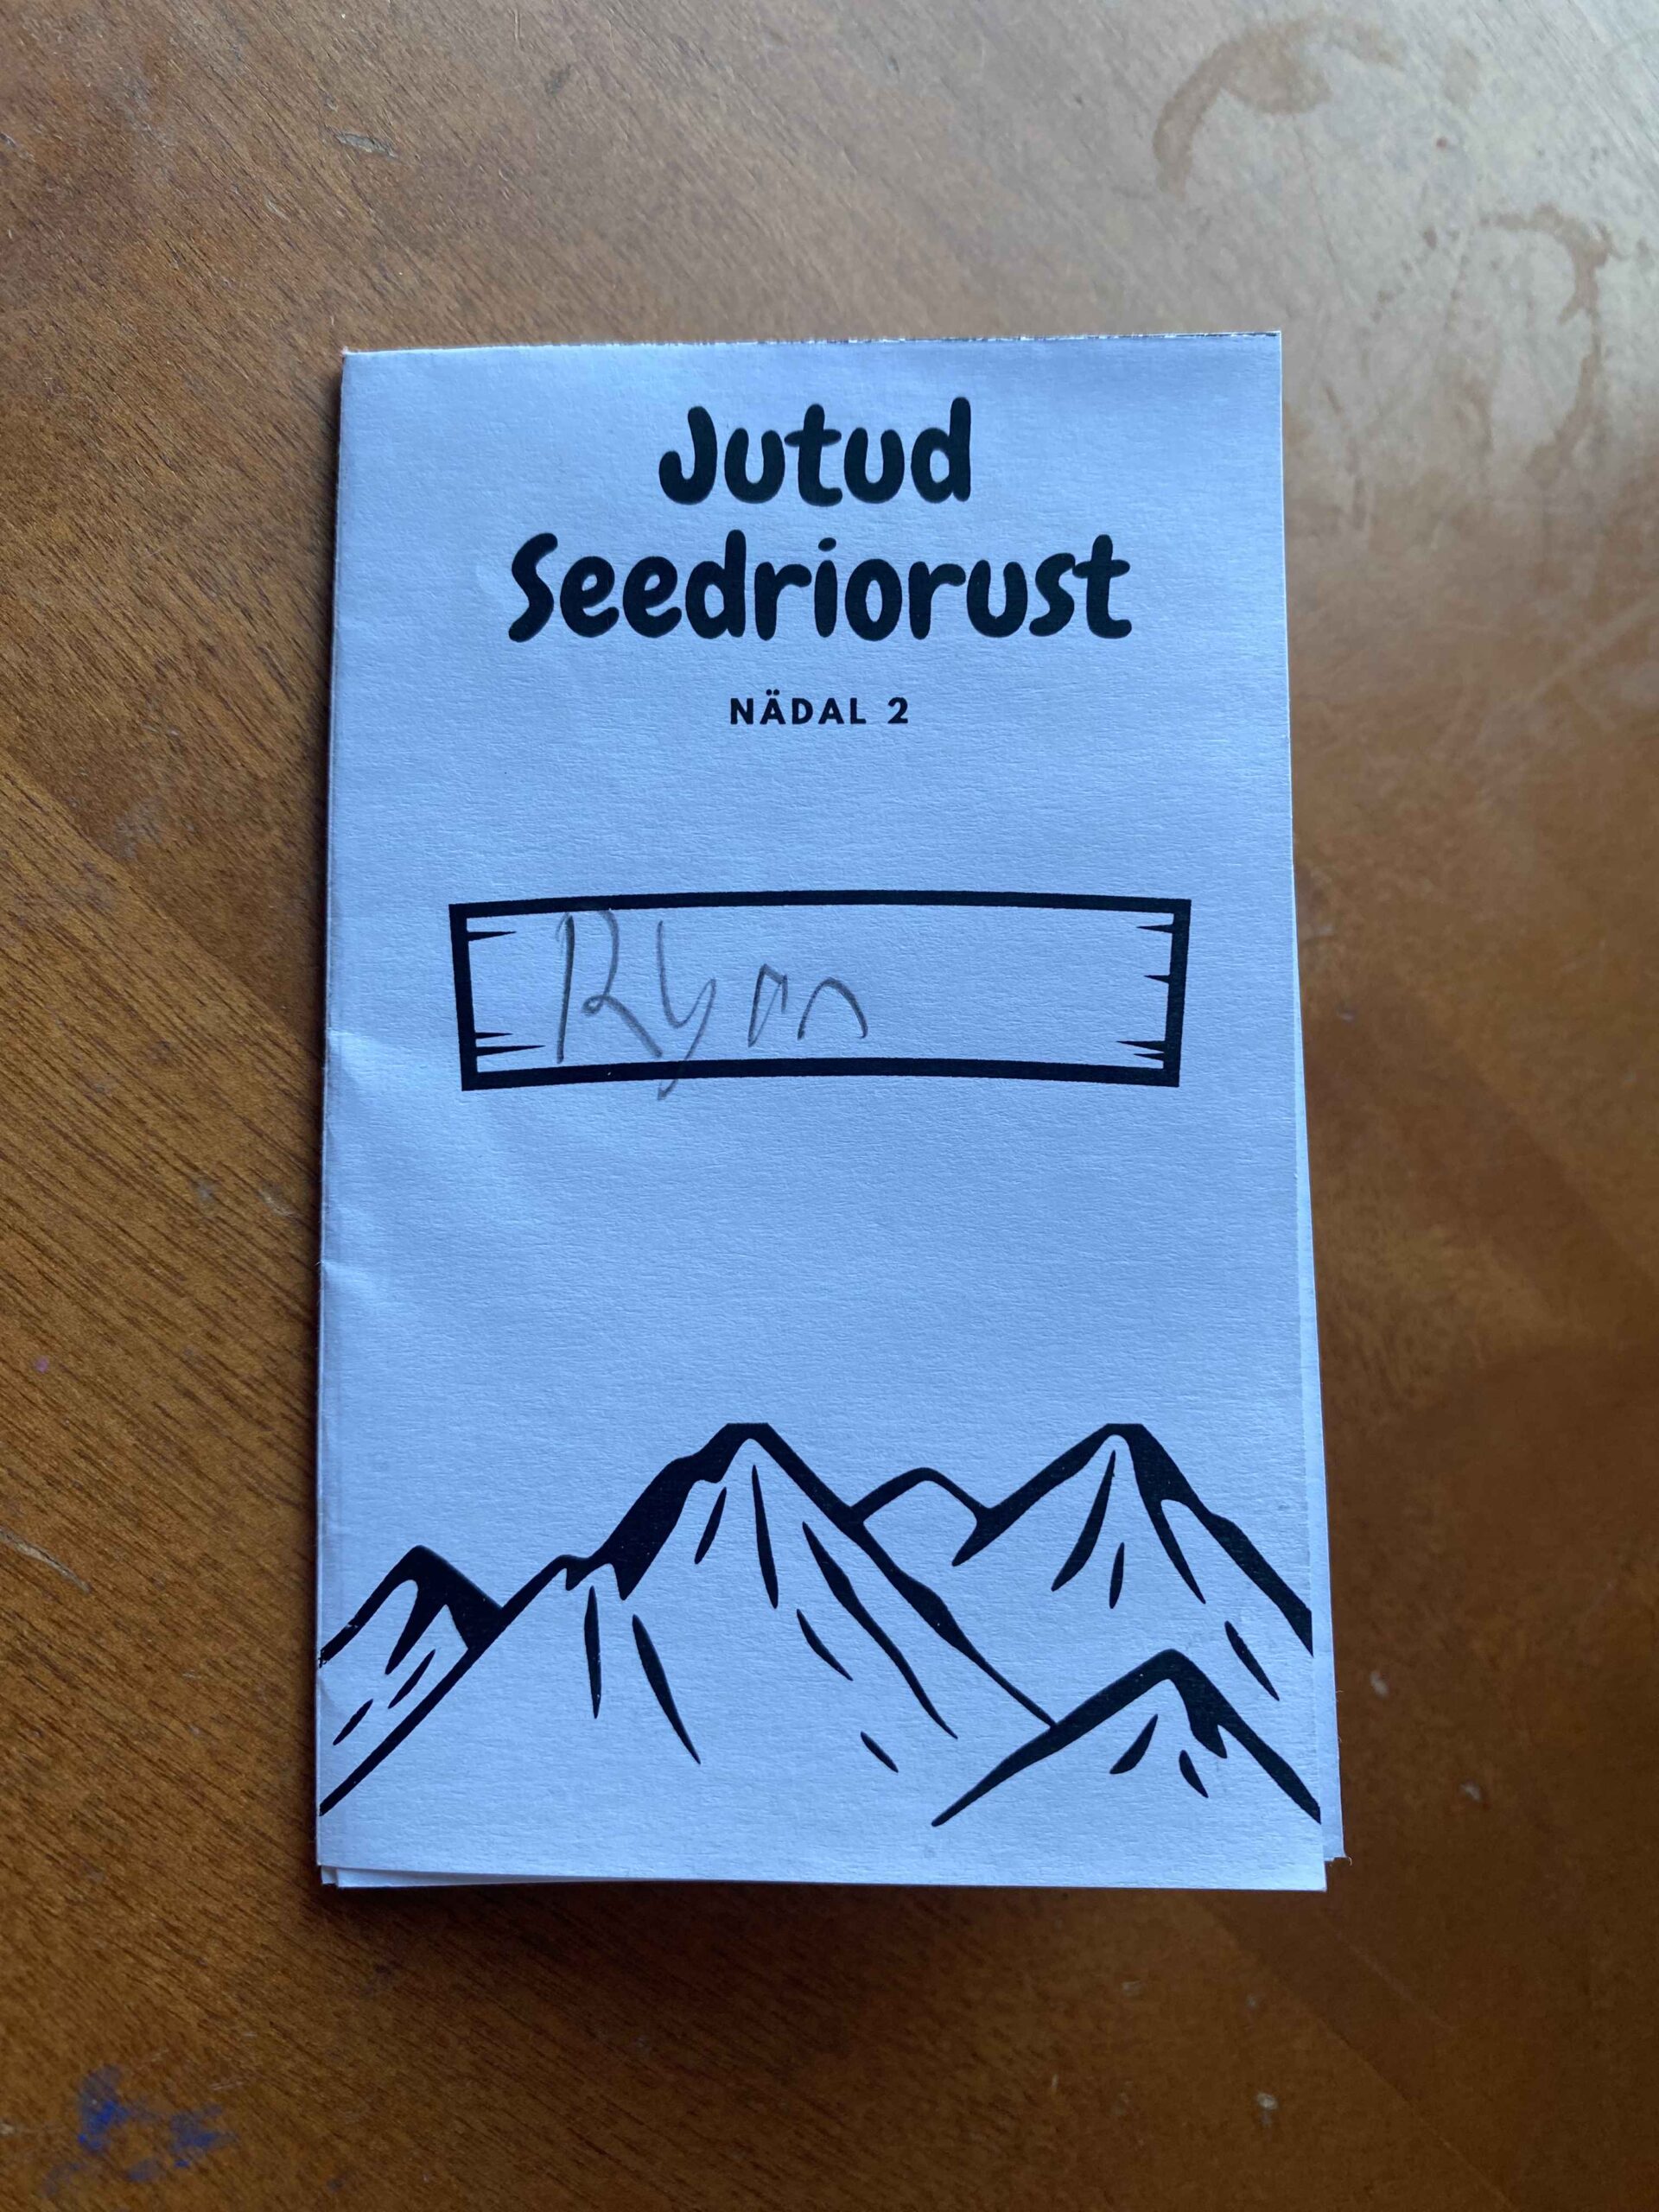 Jutud
Seedriorust
NÄDAL 2
Ryan